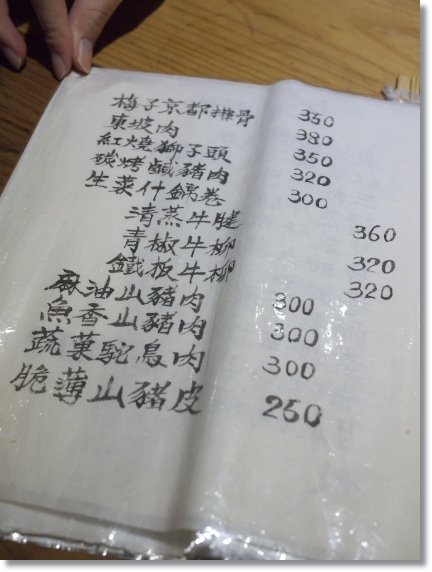 梅子京都排骨 350
東坡肉 380
紅燒獅子頭 350
碳烤鹹豬肉 320
生菜什錦卷 300
清蒸牛腱 360
青椒牛柳 320
鐵板牛柳 320
麻油山豬肉 300
魚香山豬肉 300
蔬菓駝鳥肉 300
脆薄山豬皮 250